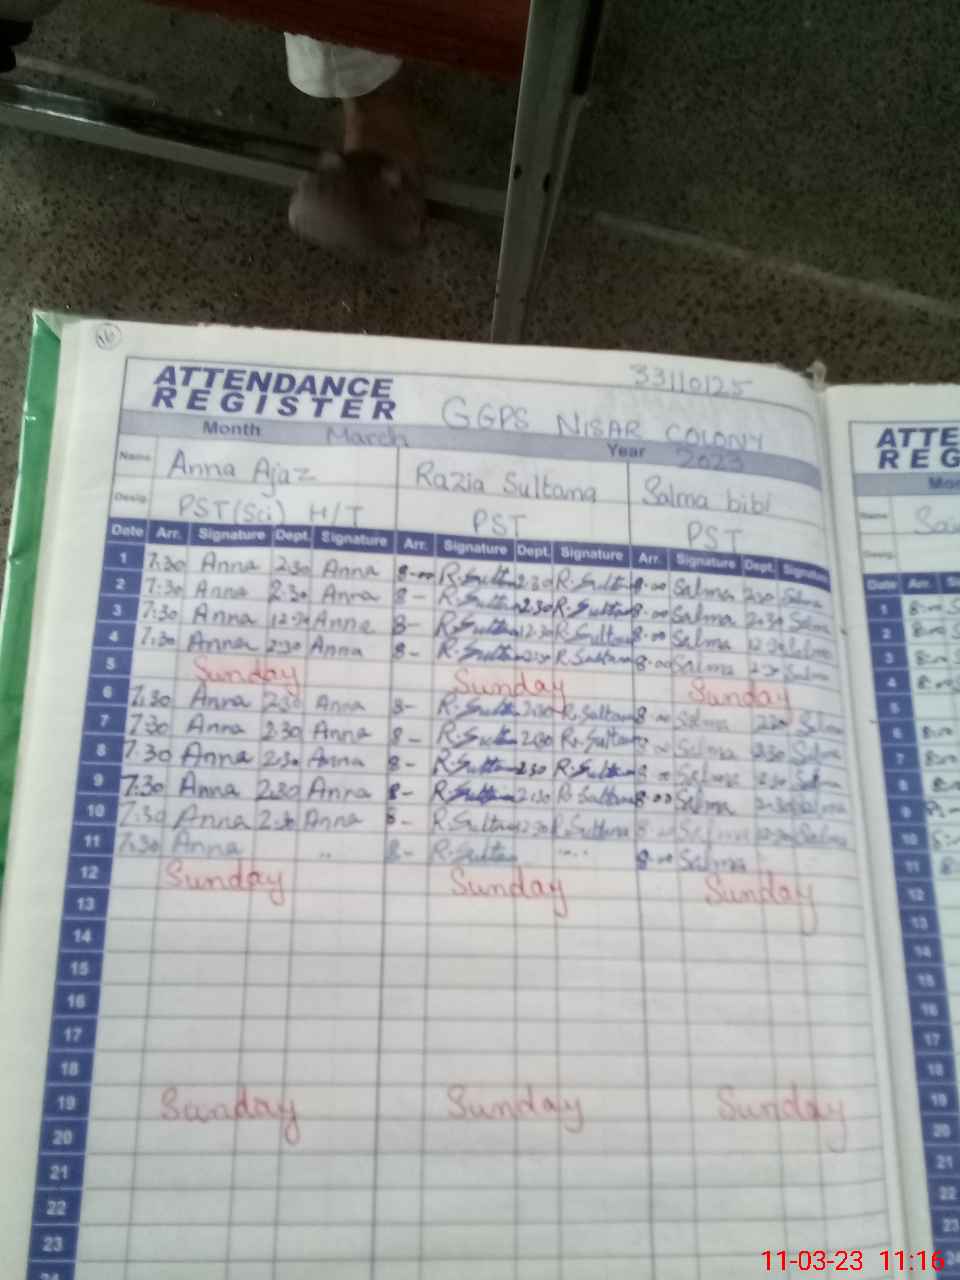 16
33110125
ATTENDANCE REGISTER GGPS NISAR COLONY
Month March Year 2023
Name Anna Ajaz Razia Sultana Salma bibi
Desig. PST(Sci) H/T PST PST
Date Arr. Signature Dept. Signature Arr. Signature Dept. Signature Arr. Signature Dept. Signature
1 7:30 Anna 2:30 Anna 8-00 R.Sultana 2:30 R.Sultana 8-00 Salma 2:30 Salma
2 7:30 Anna 2:30 Anna 8- R.Sultana 2:30 R.Sultana 8-00 Salma 2:30 Salma
3 7:30 Anna 12:30 Anna 8- R.Sultana 12:30 R.Sultana 8-00 Salma 12:30 Salma
4 7:30 Anna 2:30 Anna 8- R.Sultana 2:30 R.Sultana 8-00 Salma 2:30 Salma
5 Sunday Sunday Sunday
6 7:30 Anna 2:30 Anna 8- R.Sultana 2:30 R.Sultana 8-00 Salma 2:30 Salma
7 7:30 Anna 2:30 Anna 8- R.Sultana 2:30 R.Sultana 8-00 Salma 2:30 Salma
8 7:30 Anna 2:30 Anna 8- R.Sultana 2:30 R.Sultana 8-00 Salma 2:30 Salma
9 7:30 Anna 2:30 Anna 8- R.Sultana 2:30 R.Sultana 8-00 Salma 2:30 Salma
10 7:30 Anna 2:30 Anna 8- R.Sultana 2:30 R.Sultana 8-00 Salma 12:30 Salma
11 7:30 Anna 8- R.Sultana 8-00 Salma
12 Sunday Sunday Sunday
13
14
15
16
17
18
19 Sunday Sunday Sunday
20
21
22
23
ATTE
REG
Date Arr.
1 8:00
2 8:00
3 8:00
4 8:00
5
6
7
8
9
10
11
12
13
14
15
16
17
18
19
20
21
22
23
11-03-23 11:16